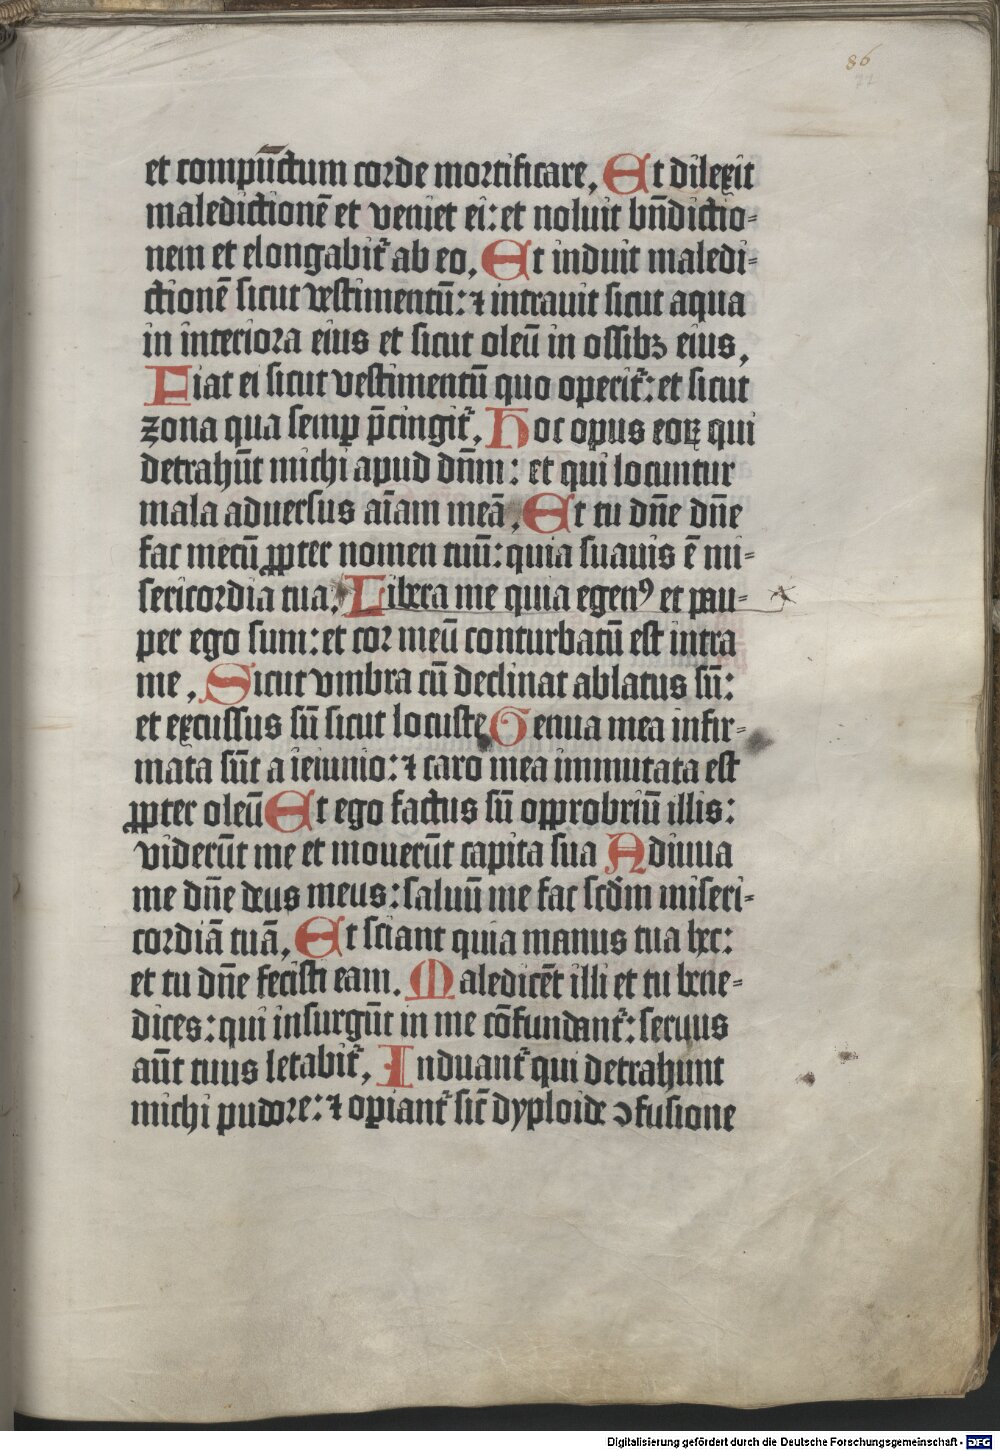 86
22
et compūctum corde mortificare, Et dilexit
maledictionē et veniet ei: et noluit bn̄dictio-
nem et elongabitᷣ ab eo, Et induit maledi-
ctionē sicut vestimentū: ⁊ intrauit sicut aqua
in interiora eius et sicut oleū in ossibꝫ eius,
Fiat ei sicut vestimentū quo operitᷣ: et sicut
zona qua semꝑ p̄cingitᷣ, Hoc opus eoꝝ qui
detrahūt michi apud dn̄m: et qui locuntur
mala aduersus aīam meā, Et tu dn̄e dn̄e
fac mecū ꝓpter nomen tuū: quia suauis ē mi-
sericordia tua, Libera me quia egenꝰ et pau-
per ego sum: et cor meū conturbatū est intra
me, Sicut vmbra cū declinat ablatus sū:
et excussus sū sicut locuste Genua mea infir-
mata sūt a ieiunio: ⁊ caro mea immutata est
ꝓpter oleū Et ego factus sū opprobriū illis:
viderūt me et mouerūt capita sua Adiuua
me dn̄e deus meus: saluū me fac scd̄m miseri-
cordiā tuā, Et sciant quia manus tua hec:
et tu dn̄e fecisti eam. Maledicēt illi et tu bene-
dices: qui insurgūt in me cōfundantᷣ: seruus
aūt tuus letabitᷣ, Induantᷣ qui detrahunt
michi pudore: ⁊ oꝑiantᷣ sic̄ dyploide ↄfusione
Digitalisierung gefördert durch die Deutsche Forschungsgemeinschaft - DFG